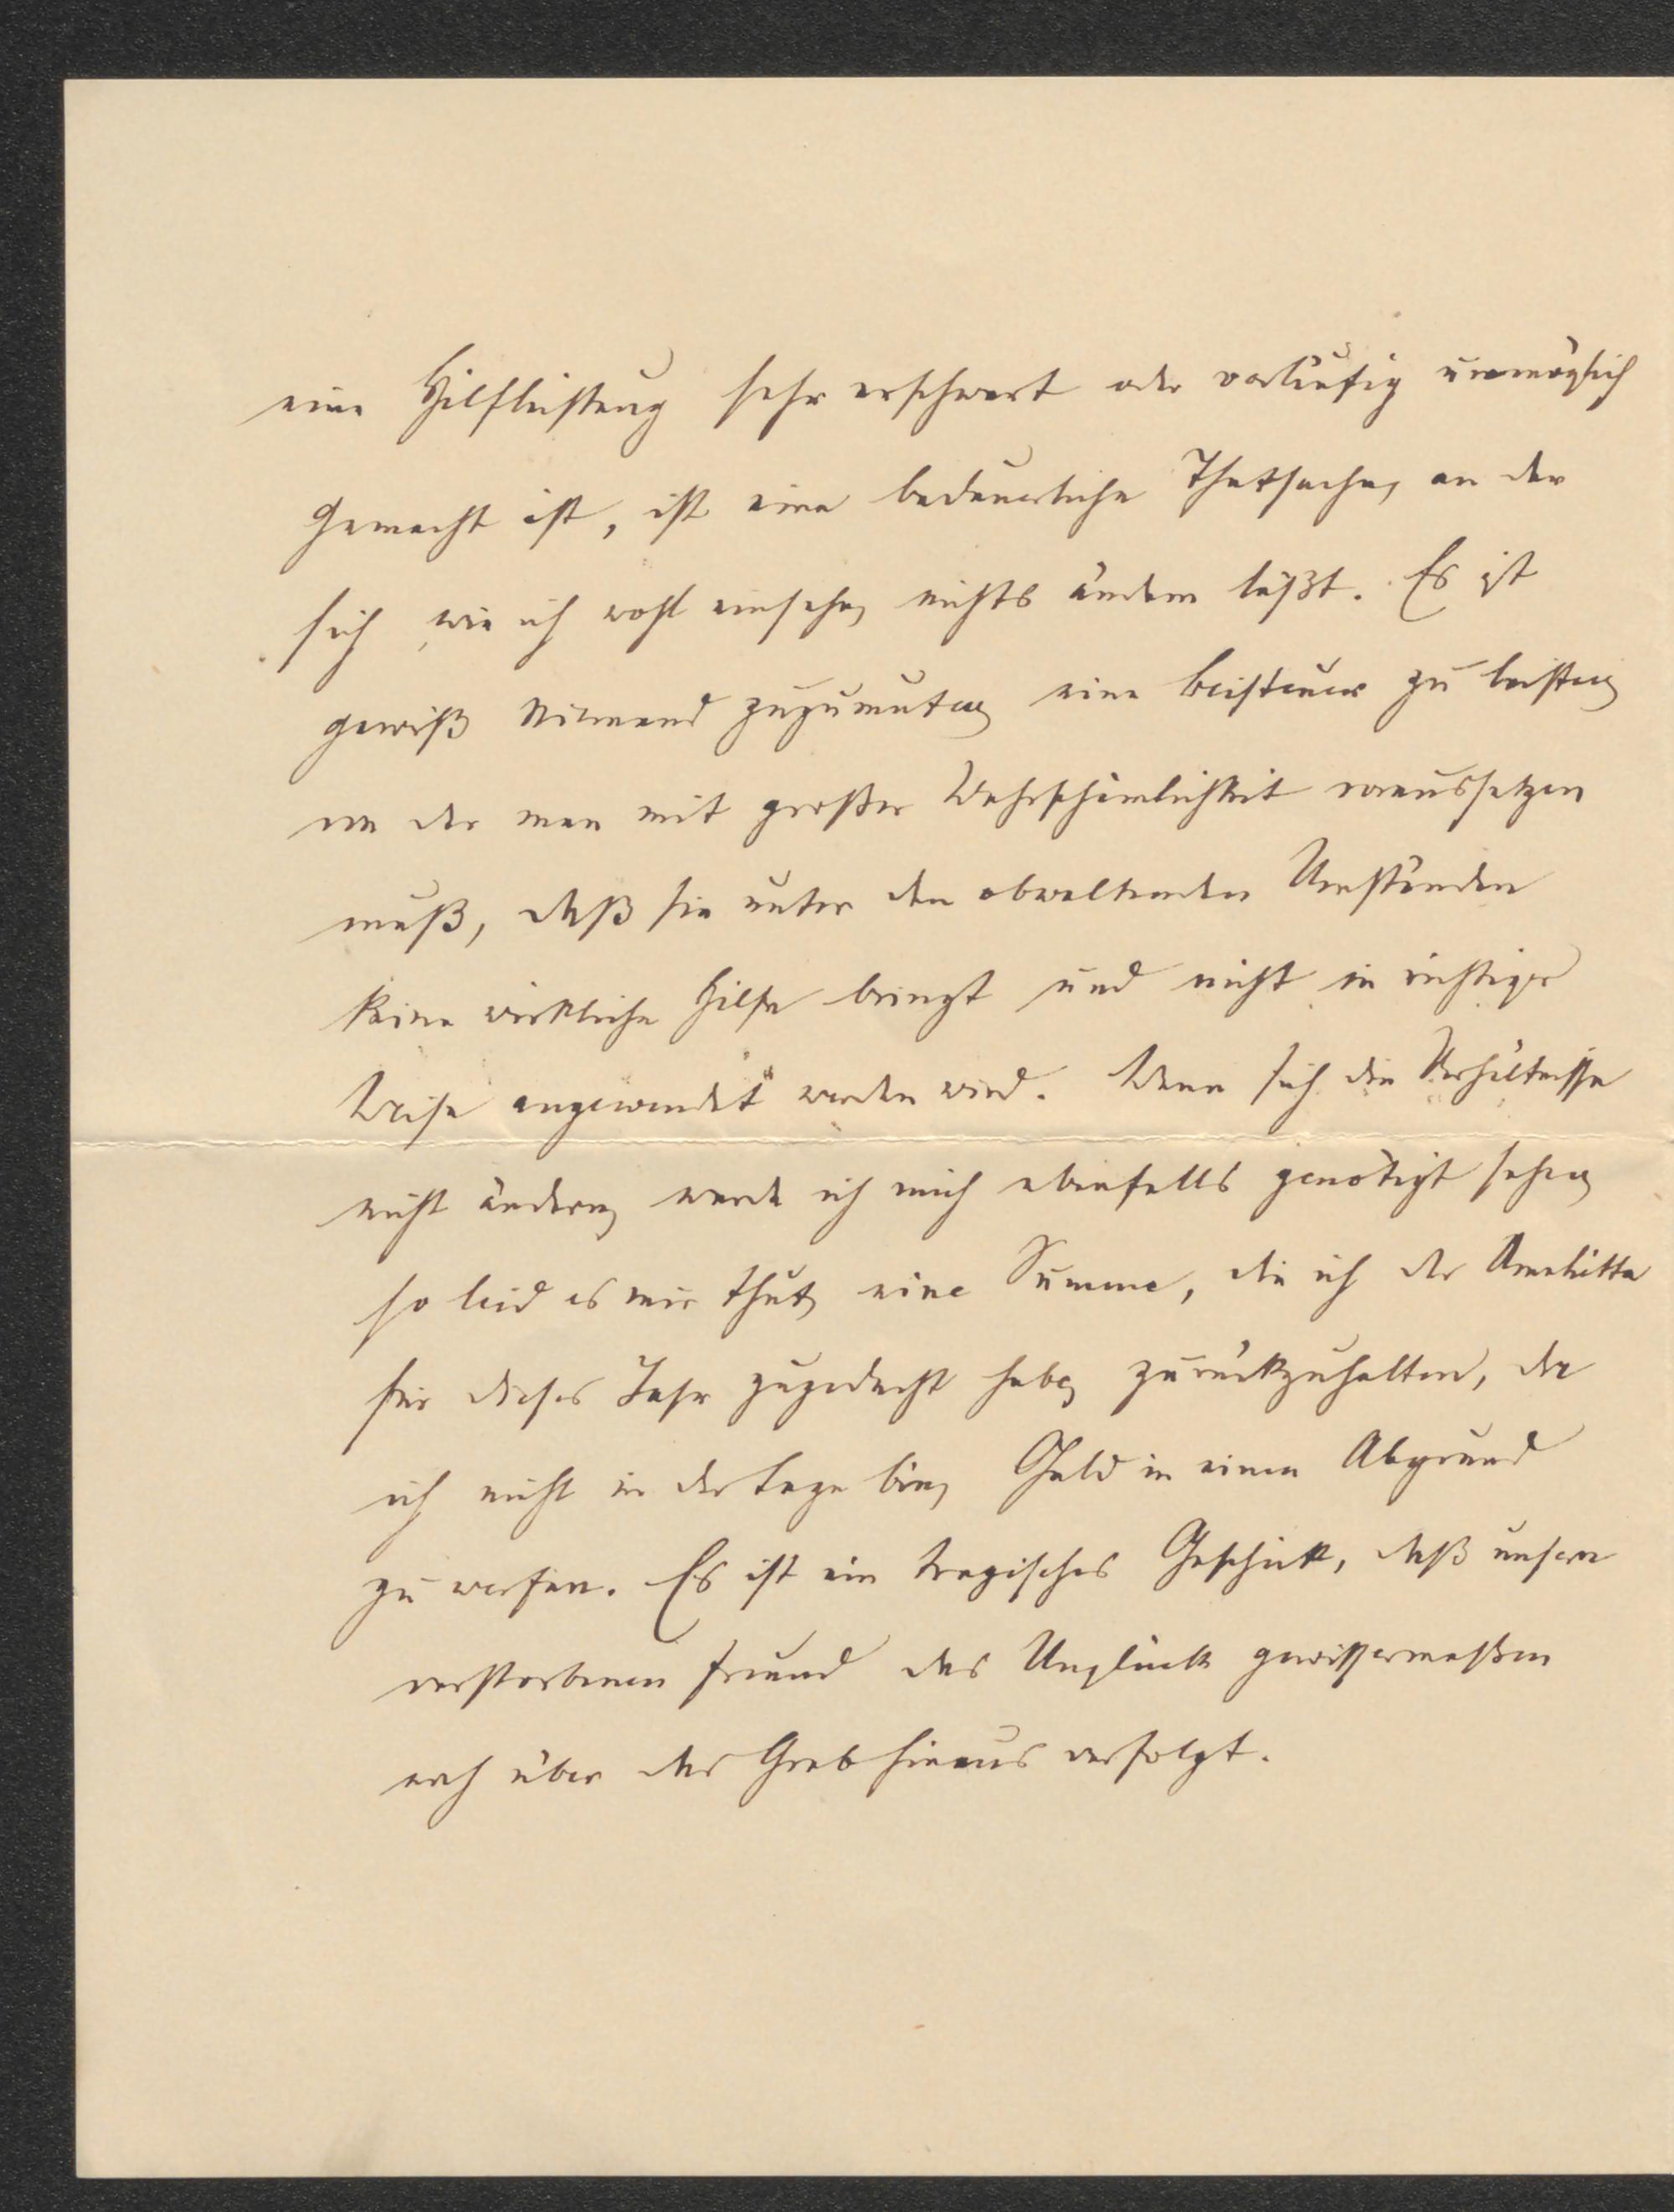 eine Hilfleistung sehr erschwert oder vorläufig unmöglich
gemacht ist, ist eine bedauerliche Thatsache, an der
sich, wie ich wohl einsehe, nichts ändern läßt. Es ist
gewiß Niemand zuzumuten eine Beisteuer zu leisten
von der man mit großer Wahrscheinlichkeit voraussetzen
muß, daß sie unter den obwaltenden Umständen
keine wirkliche Hilfe bringt und nicht in richtiger
Weise angewendet werden wird. Wenn sich die Verhältnisse
nicht ändern, werde ich mich ebenfalls genötigt sehen
so leid es mir thut, eine Summe, die ich der
für dieses Jahr zugedacht habe, zurückzuhalten, da
ich nicht in der Lage bin, Geld in einen Abgrund
zu werfen. Es ist ein tragisches Geschick, daß unsern
verstorbenen Freund das Unglück gewissermaßen
noch über das Grab hinaus verfolgt.